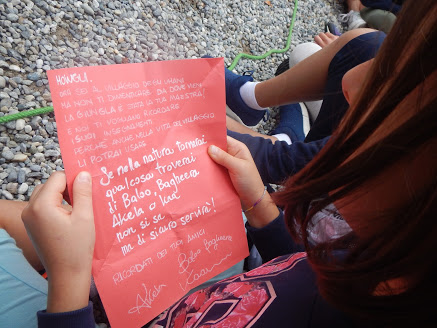 HOWGLI.
ORA SEI AL VILLAGGIO DEGLI UOMINI
MA NON TI DIMENTICARE DA DOVE VIENI
LA GIUNGLA È STATA LA TUA MAESTRA!
E NOI TI VOGLIAMO RICORDARE
I SUOI INSEGNAMENTI
PERCHÉ ANCHE NELLA VITA DEL VILLAGGIO
LI POTRAI USARE
Se nella natura tornerai
qualcosa troverai
di Baloo, Bagheera
Akela o Kaa
non si sa
ma di sicuro servirà!
RICORDATI DEI TUOI AMICI
Baloo Bagheera
Akela Kaa